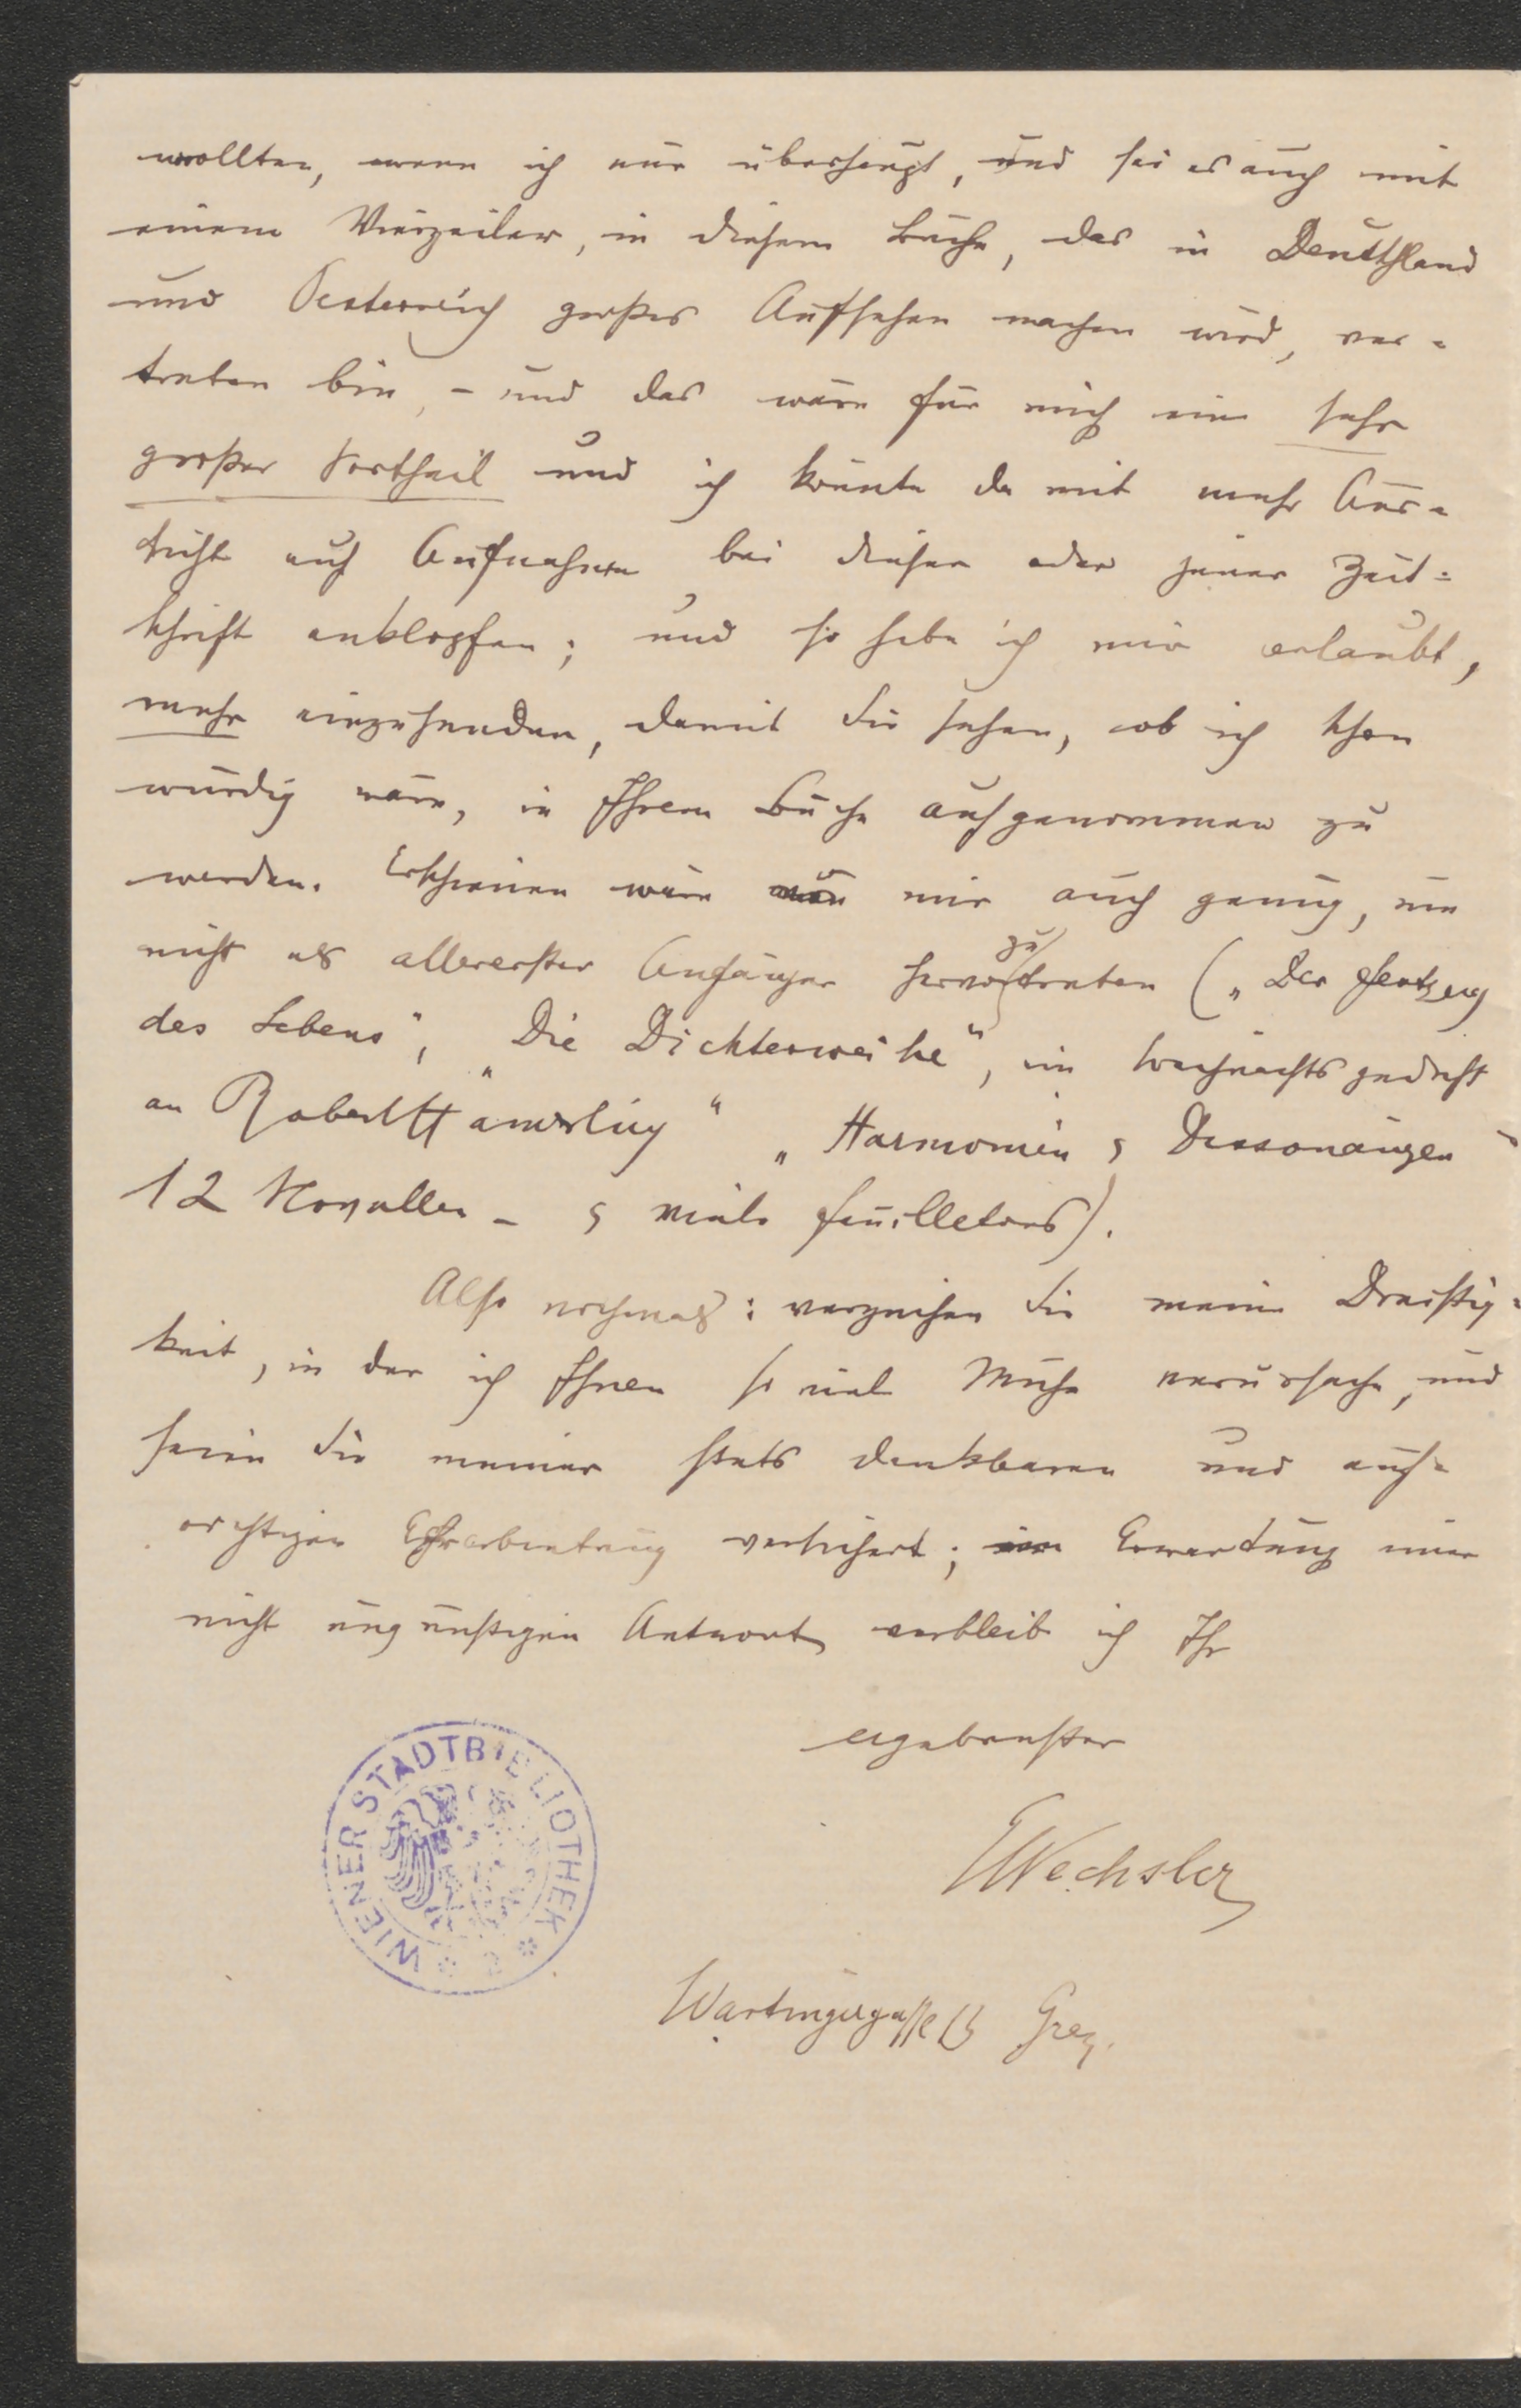 wollten, wenn ich nur überhaupt, und sei es auch mit
einem Vierzeiler, in diesem Buche, das in Deutschland
und Oesterreich großes Aufsehen machen wird, ver=
treten bin, – und das wäre für mich ein sehr
großer Vortheil und ich könnte da mit mehr Aus=
sicht auf Aufnahme bei dieser oder jener Zeit=
schrift anklopfen; und so habe ich mir erlaubt,
mehr einzusenden, damit Sie sehen, ob ich schon
würdig wäre, in Ihrem Buche aufgenommen zu
werden. Erschienen wäre von mir auch genug, um
nicht als allererster Anfänger hervorzutreten („Der
des Lebens", „Die Dichterweihe", ein Weihnachtsgedicht
an Robert Hamerling" „Harmonien & Dissonanzen"
12 Novellen – & viele Feuilletons).
Also nochmals: verzeihen Sie meine Dreistig=
keit, in der ich Ihnen so viel Mühe verursache, und
seien Sie meiner stets dankbaren und auf=
richtigen Ehrerbietung versichert; in Erwartung einer
nicht ungünstigen Antwort verbleib ich Ihr
ergebenster
EWechsler
Wartingergasse 13 Graz.
WIENER STADTBIBLIOTHEK